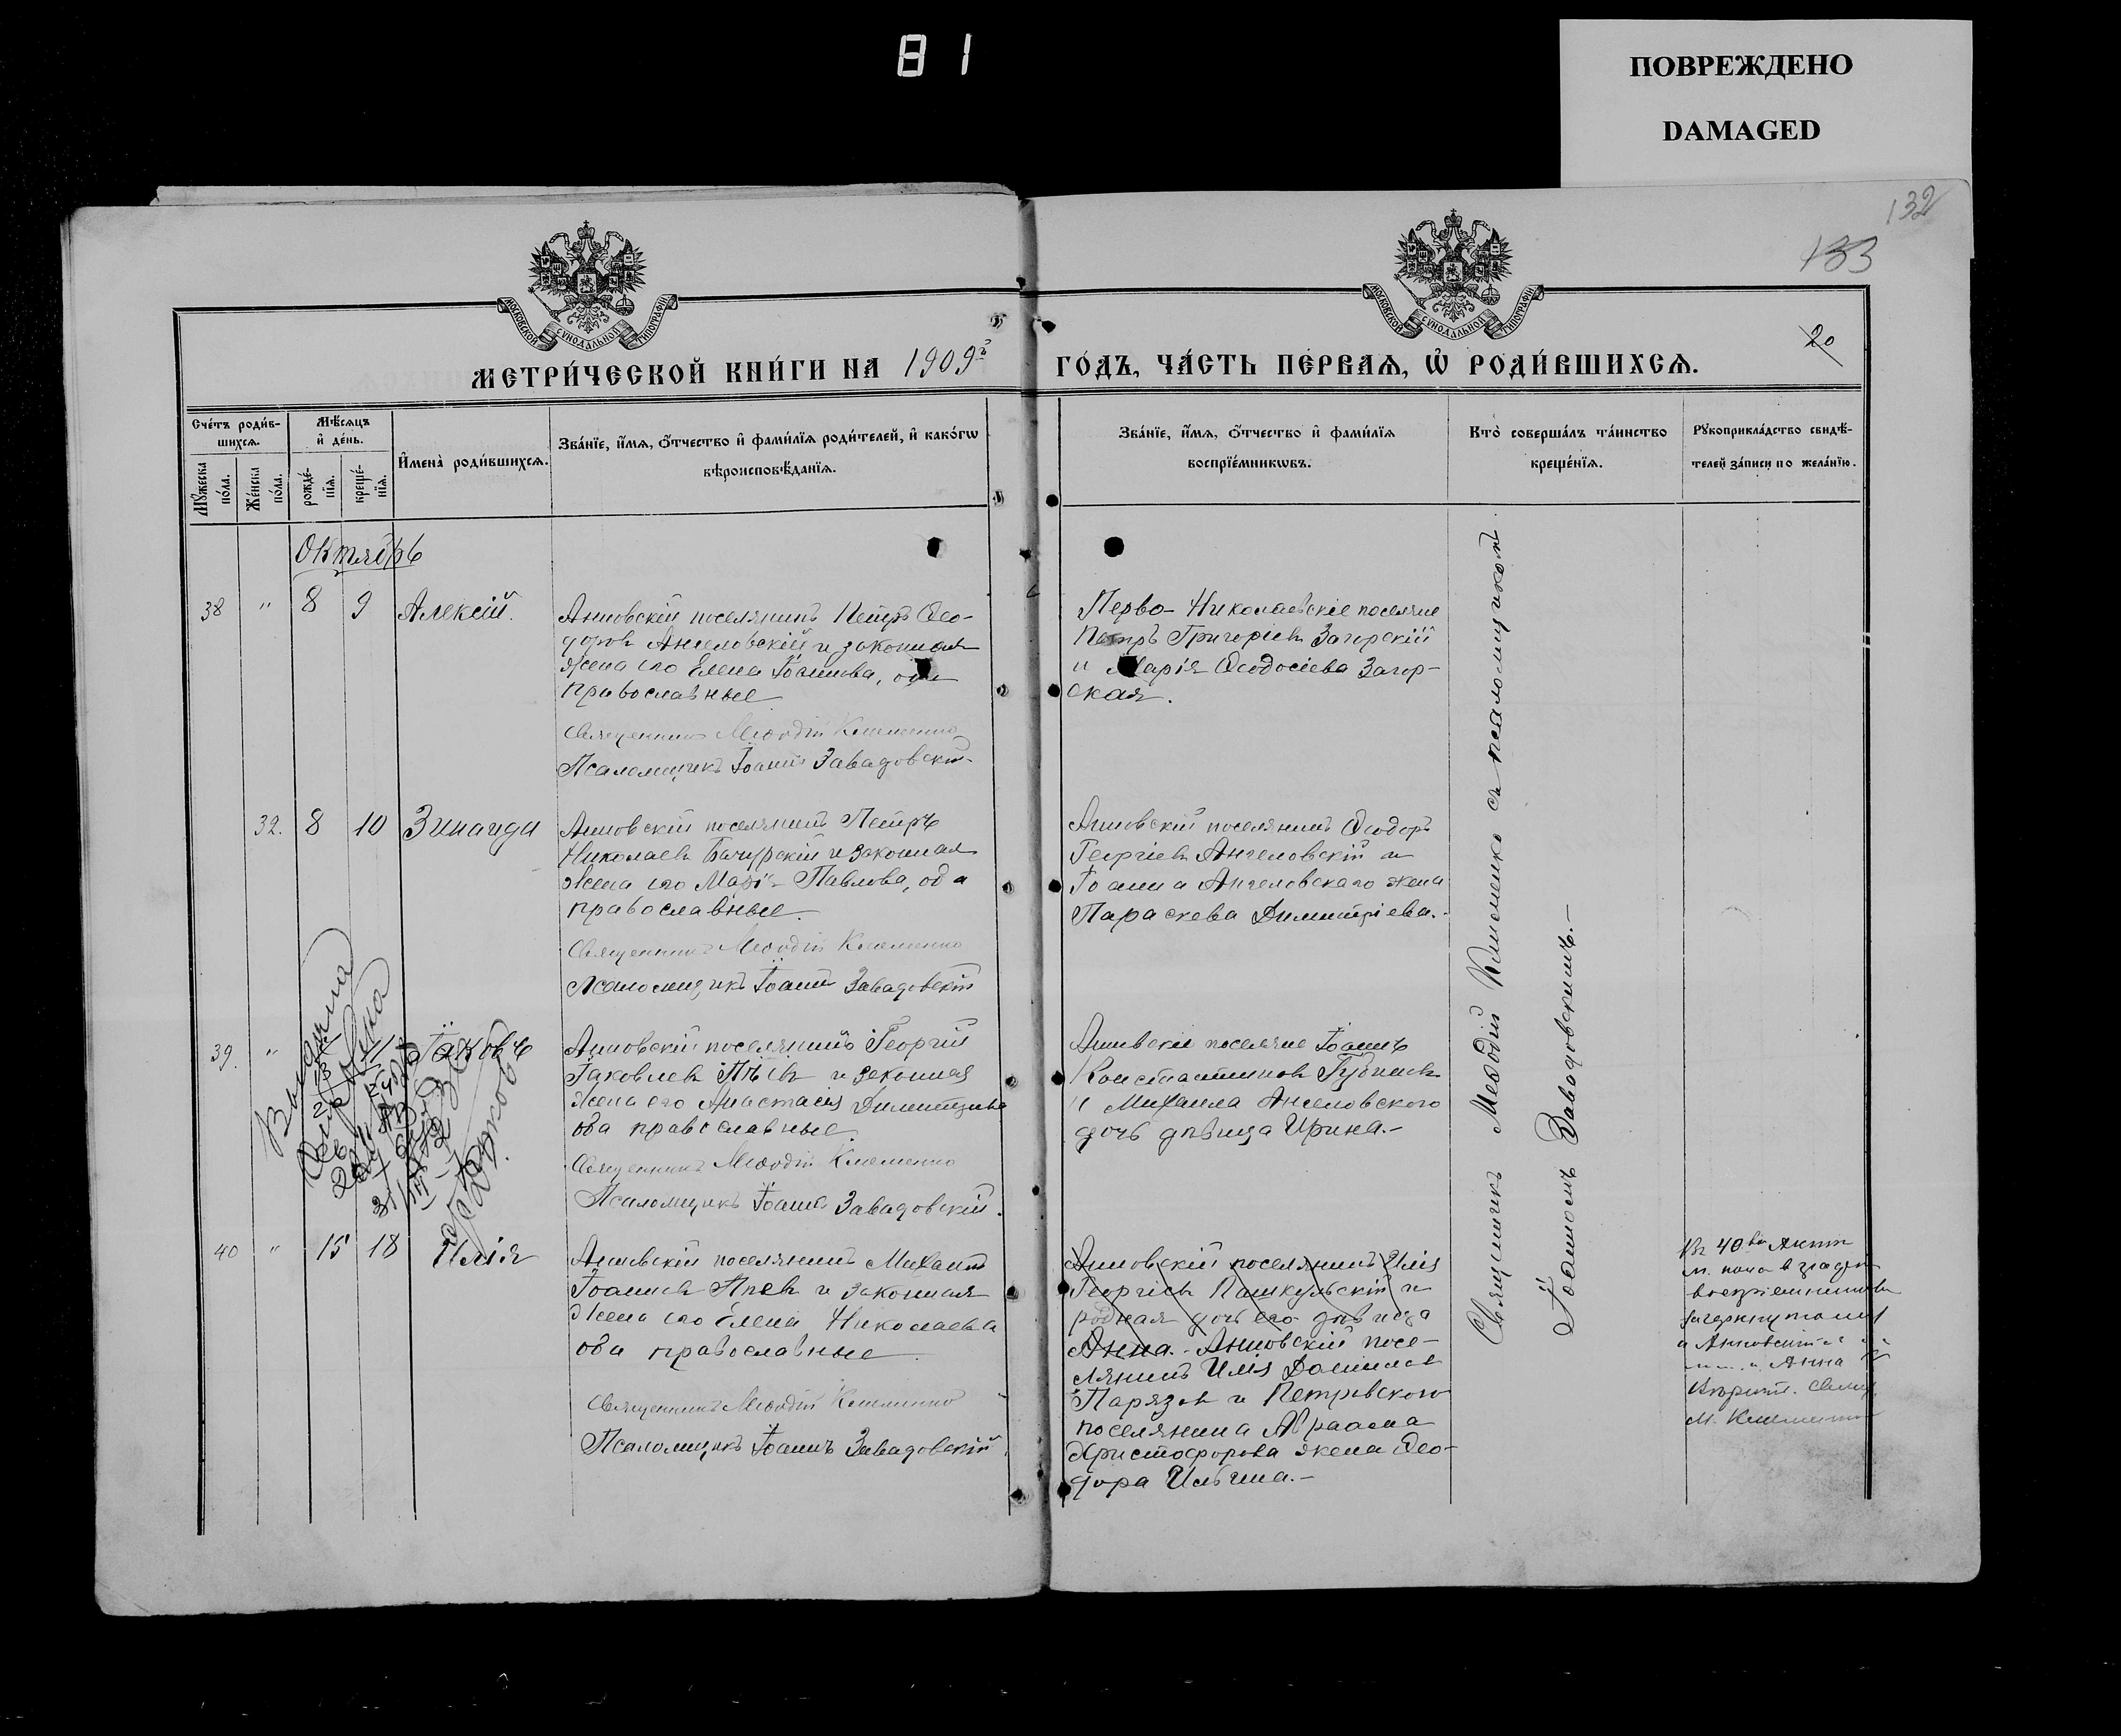 81
ПОВРЕЖДЕНО
DAMAGED
132
133
20
МОСКОВСКОЙ СѴНОДАЛЬНОЙ ТИПОГРАФІИ
МОСКОВСКОЙ СѴНОДАЛЬНОЙ ТИПОГРАФІИ
МЕТРИ́ЧЕСКОЙ КНИ́ГИ НА 1909 ГО́ДЪ, ЧА́СТЬ ПЕ́РВАѦ, Ѡ҆ РОДИ́ВШИХСѦ.
Сче́тъ роди́в-
шихсѧ.
Мꙋ́жеска по́ла.
Же́нска по́ла.
Мѣ́сѧцъ
и҆ де́нь.
рожде́-
нїѧ.
креще́-
нїѧ.
И҆мена̀ роди́вшихсѧ.
Зва́нїе, и҆́мѧ, ѻ҆́тчество и҆ фами́лїѧ роди́телей, и҆ како́гѡ
вѣроисповѣ́данїѧ.
Зва́нїе, и҆́мѧ, ѻ҆́тчество и҆ фами́лїѧ
воспрїе́мникѡвъ.
Кто̀ соверша́лъ та́инство
креще́нїѧ.
Рꙋкоприкла́дство свидѣ́-
телей за́писи по жела́нїю.
Октябрь
38 " 8 9 Алексій.
Анновскій поселянинъ Петръ Ѳео-
доровъ Ангеловскій и законная
жена его Елена Іоаннова, оба
православные
Священникъ Меѳодій Клименко
Псаломщикъ Іоаннъ Завадовскій
Перво-Николаевскіе поселяне
Петръ Григоріевъ Загорскій
и Марія Ѳеодосіева Загор-
ская.
32. 8 10 Зинаида
Анновскій поселянинъ Петръ
Николаевъ Бачурскій и законная
жена его Марія Павлова, оба
православные.
Священникъ Меѳодій Клименко
Псаломщикъ Іоаннъ Завадовскій
Анновскій поселянинъ Ѳеодоръ
Георгіевъ Ангеловскій и
Іоанна Ангеловскаго жена
Параскева Димитріева.-
39. " Іаковъ
Анновскій поселянинъ Георгій
Іаковлевъ и законная
жена его Анастасія Димитріева
оба православные
Священникъ Меѳодій Клименко
Псаломщикъ Іоаннъ Завадовскій.
Анновскіе поселяне Іоаннъ
Константиновъ
и Михаила Ангеловского
дочь дѣвица Ирина.-
Выдана
40 " 15 18 Илія
Анновскій поселянинъ Михаилъ
Іоанновъ и законная
жена его Елена Николаева
оба православные.
Священникъ Меѳодій Клименко
Псаломщикъ Іоаннъ Завадовскій.
Анновскій поселянинъ Илія
Георгіевъ Пашкульскій и
родная дочь его дѣвица
Анна.- Анновскій посе-
лянинъ Илія Даніиловъ
Парязовъ и Петровского
поселянина Авраама
Христофорова жена Ѳео-
дора Ильина.-
Священникъ Меѳодій Клименко съ псаломщикомъ
Іоанномъ Завадовскимъ.-
Въ 40
зачеркнутому
Анна
М. Клименко